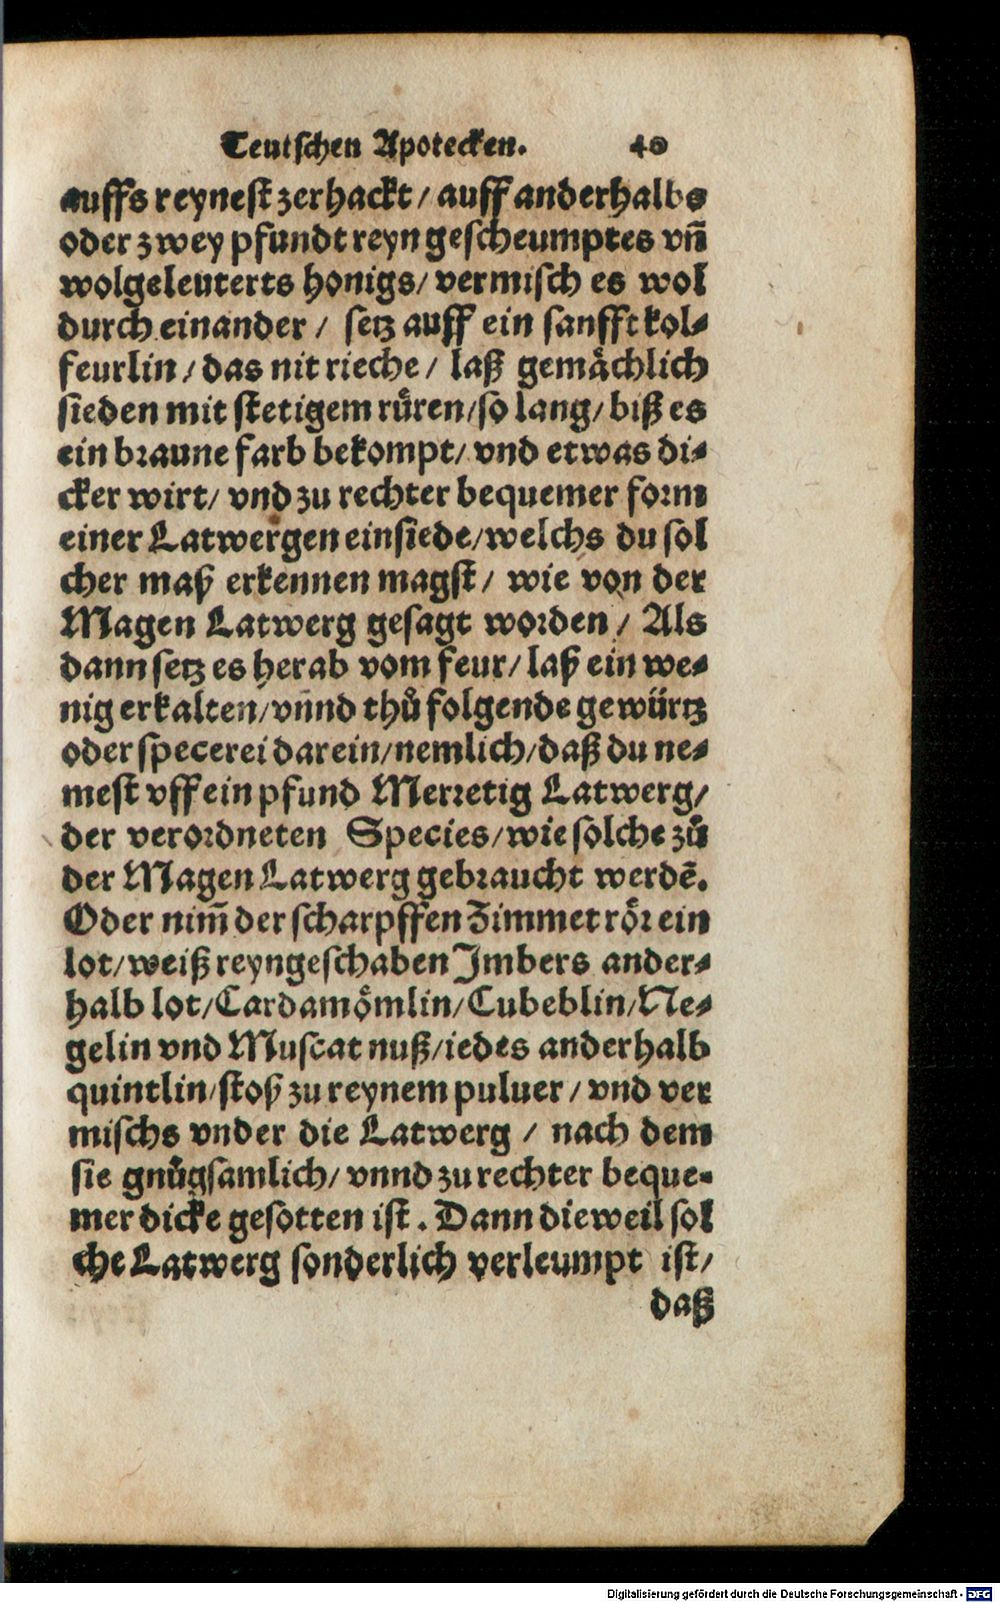 Teutschen Apotecken. 40
auffs reynest zerhackt / auff anderhalbs
oder zwey pfundt reyn gescheumptes vñ
wolgeleuterts honigs / vermisch es wol
durch einander / setz auff ein sanfft kol⸗
feurlin / das nit rieche / laß gemaͤchlich
sieden mit stetigem ruͤren / so lang / biß es
ein braune farb bekompt / vnd etwas di⸗
cker wirt / vnd zu rechter bequemer form
einer Latwergen einsiede / welchs du sol
cher maß erkennen magst / wie von der
Magen Latwerg gesagt worden / Als
dann setz es herab vom feur / laß ein we⸗
nig erkalten / vñnd thuͦ folgende gewürtz
oder specerei darein / nemlich / daß du ne⸗
mest vff ein pfund Merretig Latwerg /
der verordneten Species / wie solche zuͦ
der Magen Latwerg gebraucht werdẽ.
Oder nim̃ der scharpffen Zimmet roͤr ein
lot / weiß reyngeschaben Imbers ander⸗
halb lot / Cardamoͤmlin / Cubeblin / Ne⸗
gelin vnd Muscat nuß / iedes anderhalb
quintlin / stoß zu reynem puluer / vnd ver
mischs vnder die Latwerg / nach dem
sie gnuͦgsamlich / vnnd zu rechter beque⸗
mer dicke gesotten ist. Dann dieweil sol
che Latwerg sonderlich verleumpt ist /
daß
Digitalisierung gefördert durch die Deutsche Forschungsgemeinschaft - DFG